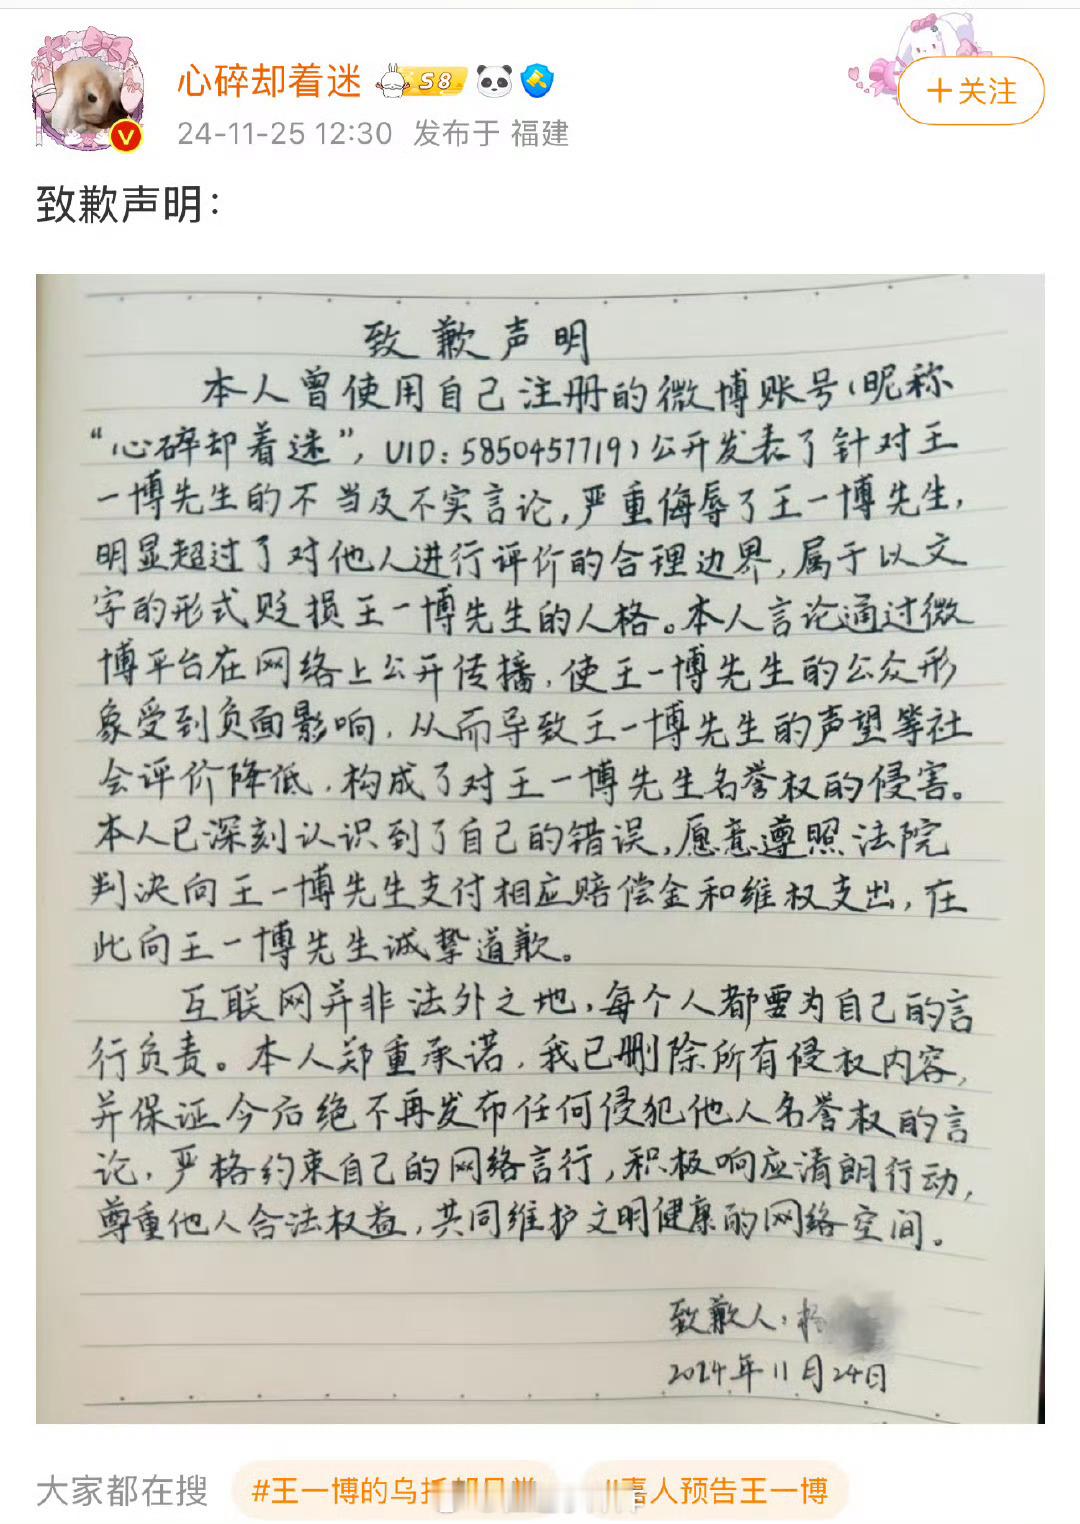 心碎却着迷 S8
+关注
24-11-25 12:30 发布于 福建
致歉声明：
致歉声明
本人曾使用自己注册的微博账号（昵称
“心碎却着迷”，UID：5850457719）公开发表了针对王
一博先生的不当及不实言论，严重侮辱了王一博先生，
明显超过了对他人进行评价的合理边界，属于以文
字的形式贬损王一博先生的人格。本人言论通过微
博平台在网络上公开传播，使王一博先生的公众形
象受到负面影响，从而导致王一博先生的声望等社
会评价降低，构成了对王一博先生名誉权的侵害。
本人已深刻认识到了自己的错误，愿意遵照法院
判决向王一博先生支付相应赔偿金和维权支出，在
此向王一博先生诚挚道歉。
互联网并非法外之地，每个人都要为自己的言
行负责。本人郑重承诺，我已删除所有侵权内容，
并保证今后绝不再发布任何侵犯他人名誉权的言
论，严格约束自己的网络言行，积极响应清朗行动，
尊重他人合法权益，共同维护文明健康的网络空间。
致歉人：杨
2024年11月24日
大家都在搜 #王一博的乌托邦 人预告王一博